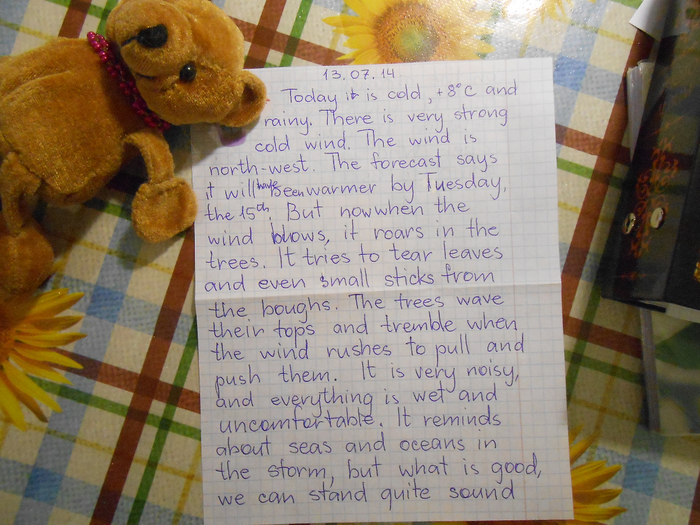 13.07.14
Today it is cold, +8°C and
rainy. There is very strong
cold wind. The wind is
north-west. The forecast says
it will have been warmer by Tuesday,
the 15th. But now when the
wind blows, it roars in the
trees. It tries to tear leaves
and even small sticks from
the boughs. The trees wave
their tops and tremble when
the wind rushes to pull and
push them. It is very noisy,
and everything is wet and
uncomfortable. It reminds
about seas and oceans in
the storm, but what is good,
we can stand quite sound